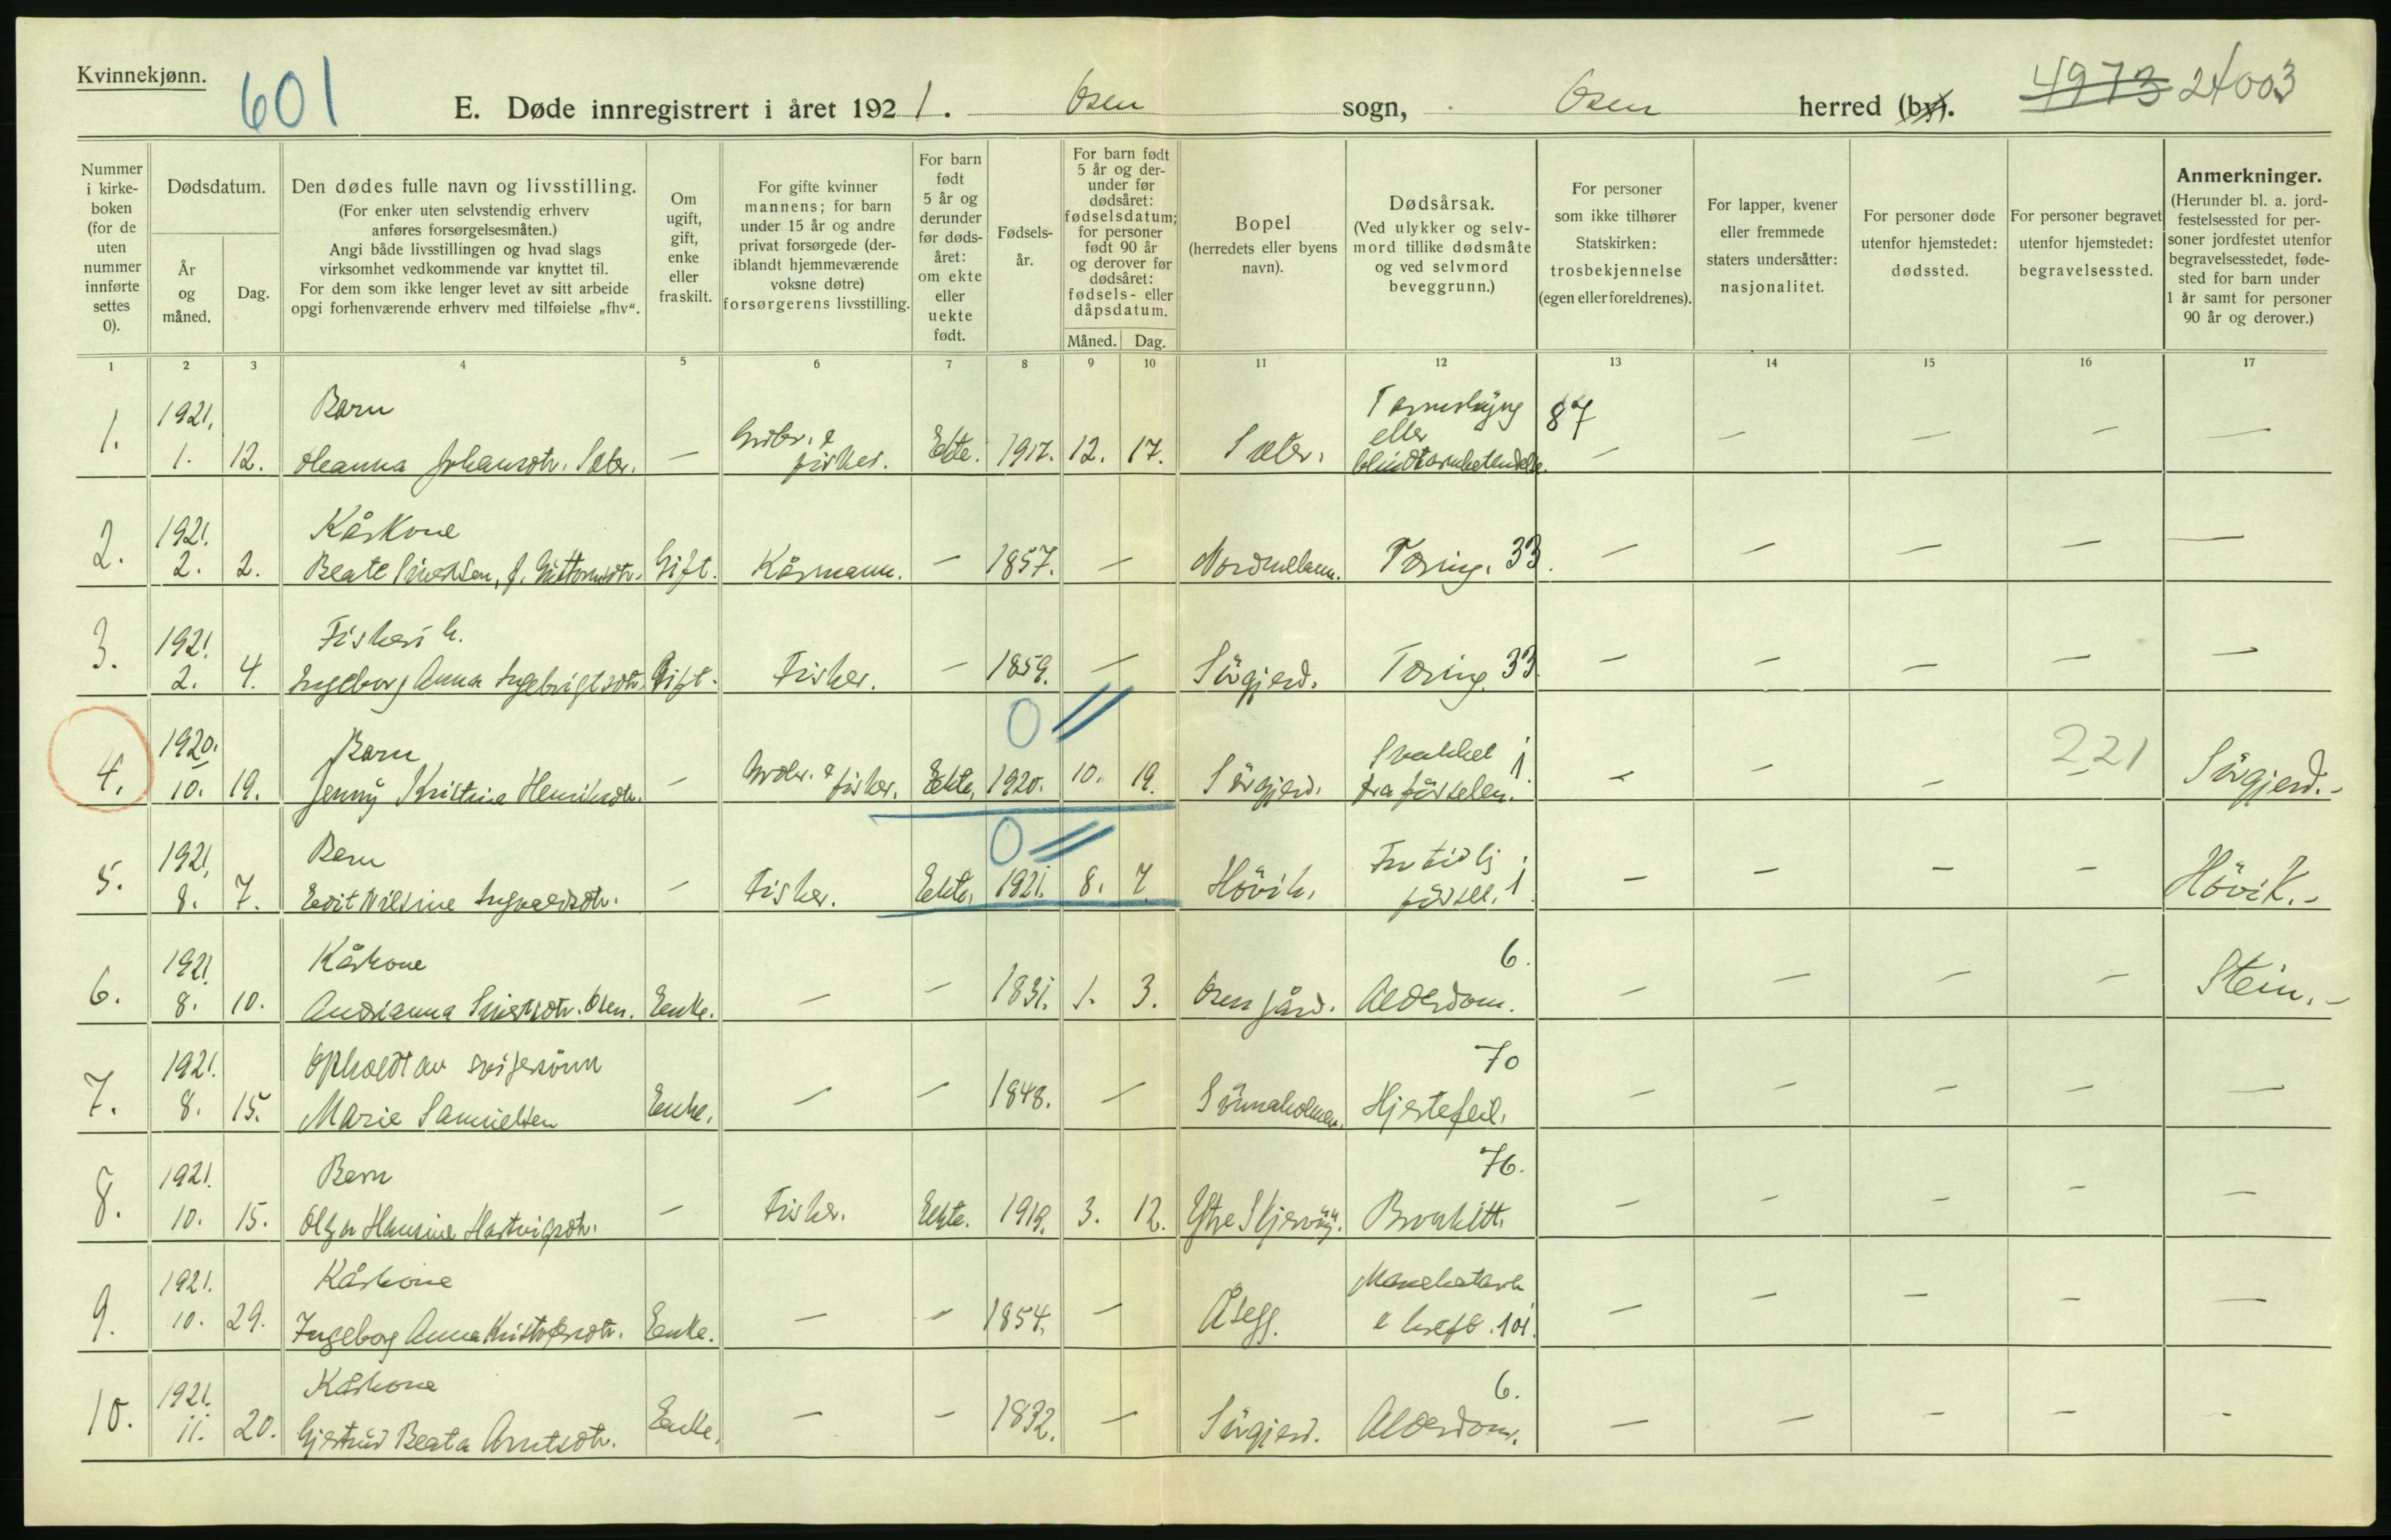 Kvinnekjønn.
601
E. Døde innregistrert i året 1921. Osen sogn, Osen herred (by).
4973 24003
Nummer i kirke-boken (for de uten nummer innførte settes 0).
Dødsdatum.
År og måned.
Dag.
Den dødes fulle navn og livsstilling.
(For enker uten selvstendig erhverv anføres forsørgelsesmåten.)
Angi både livsstillingen og hvad slags virksomhet vedkommende var knyttet til.
For dem som ikke lenger levet av sitt arbeide opgi forhenværende erhverv med tilføielse „fhv“.
Om ugift, gift, enke eller fraskilt.
For gifte kvinner mannens; for barn under 15 år og andre privat forsørgede (der-iblandt hjemmeværende voksne døtre) forsørgerens livsstilling.
For barn født 5 år og derunder før døds-året: om ekte eller uekte født.
Fødsels-år.
For barn født 5 år og der-under før dødsåret: fødselsdatum; for personer født 90 år og derover før dødsåret: fødsels- eller dåpsdatum.
Måned. Dag.
Bopel (herredets eller byens navn).
Dødsårsak.
(Ved ulykker og selv-mord tillike dødsmåte og ved selvmord beveggrunn.)
For personer som ikke tilhører Statskirken: trosbekjennelse (egen eller foreldrenes).
For lapper, kvener eller fremmede staters undersåtter: nasjonalitet.
For personer døde utenfor hjemstedet: dødssted.
For personer begravet utenfor hjemstedet: begravelsessted.
Anmerkninger.
(Herunder bl. a. jord-festelsessted for per-soner jordfestet utenfor begravelsesstedet, føde-sted for barn under 1 år samt for personer 90 år og derover.)
1 2 3 4 5 6 7 8 9 10 11 12 13 14 15 16 17
1921. Barn 87
1. 1. 12. Johansdtr. Sæter. — fisker. Ekte. 1917. 12. 17. Sæter. eller — — — — —
1921. Kåskone
2. 2. 2. Beate Gift. Kåsmann. — 1857. — Tæring. 33. — — — — —
1921. Fisker
3. 2. 4. Ingeborg Anna Ingebrigtsdtr. Gift. Fisker. — 1859. — Sörgjerd. Tæring. 33 — — — — —
1920. Barn 0 Svakhet 1 221
4. 10. 19. Jenny Kristine Henriksdtr. — fisker. Ekte. 1920. 10. 19. Sörgjerd. fra förselen. — — — Sörgjerd.-
1921. Barn 0 For tidlig
5. 8. 7. Ingvaldsdtr. — Fisker. Ekte. 1921. 8. 7. Hövik. försel. 1 — — — — Hövik.-
1921. Kåskone 6.
6. 8. 10. Andrianna Osen. Enke. — — 1831. 1. 3. Osen gård. Alderdom. — — — — Stein.-
1921. Opholdt av svigersönn 70
7. 8. 15. Marie Samuelsen Enke. — — 1848. — Sönnaholmen. Hjertefeil. — — — — —
1921. Barn 76.
8. 10. 15. Olga Hansine Hartvigsdtr. — Fisker. Ekte. 1919. 3. 12. Bronkitt. — — — — —
1921. Kåskone Mavekatarrh
9. 10. 29. Ingeborg Anna Kristofersdtr. Enke. — — 1854. — Åsegg. kreft. 101. — — — — —
1921. Kåskone 6.
10. 11. 20. Gjertrud Beata Arntsdtr. Enke. — — 1832. — Sörgjerd. Alderdom. — — — — -